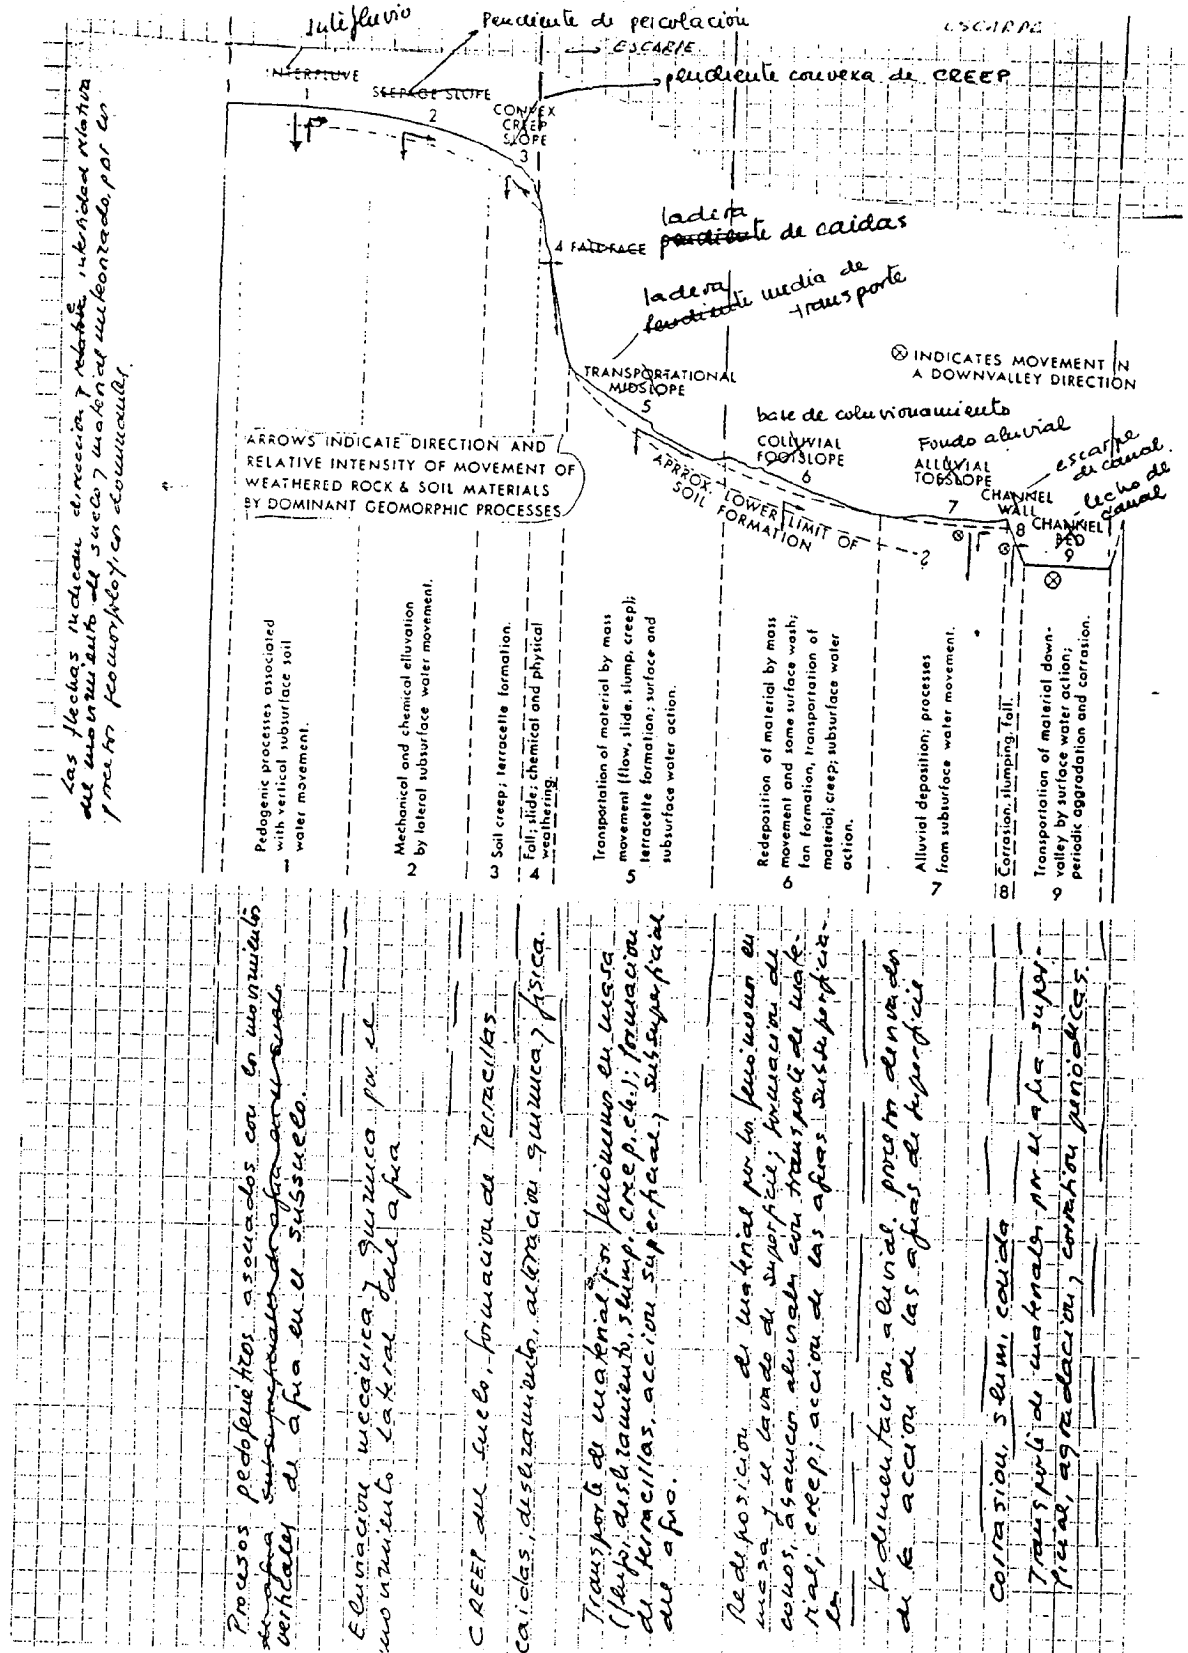 interfluvio
Pendiente de percolación
ESCARPE
ESCARPE
pendiente convexa de CREEP
INTERFLUVE
1
SEEPAGE SLOPE
2
CONVEX
CREEP
SLOPE
3
4 FALL FACE
ladera
pendiente de caídas
ladera
pendiente media de
transporte
TRANSPORTATIONAL
MIDSLOPE
5
⊗ INDICATES MOVEMENT IN
A DOWNVALLEY DIRECTION
base de coluvionamiento
COLLUVIAL
FOOTSLOPE
6
Fondo aluvial
ALLUVIAL
TOESLOPE
7
escarpe
de canal
CHANNEL
WALL
8
lecho de
canal
CHANNEL
BED
9
ARROWS INDICATE DIRECTION AND
RELATIVE INTENSITY OF MOVEMENT OF
WEATHERED ROCK & SOIL MATERIALS
BY DOMINANT GEOMORPHIC PROCESSES
APRROX. LOWER LIMIT OF
SOIL FORMATION
?
Las flechas indican dirección y relativa intensidad relativa
del movimiento del suelo y material meteorizado, por los
procesos geomorfológicos dominantes.
Pedogenic processes associated
with vertical subsurface soil
water movement.
1
Mechanical and chemical elluvation
by lateral subsurface water movement.
2
Soil creep; terracette formation.
3
Fall; slide; chemical and physical
weathering.
4
Transportation of material by mass
movement (flow, slide, slump, creep);
terracette formation; surface and
subsurface water action.
5
Redeposition of material by mass
movement and some surface wash;
fan formation, transportation of
material; creep; subsurface water
action.
6
Alluvial deposition; processes
from subsurface water movement.
7
Corrasion, slumping, fall.
8
Transportation of material down-
valley by surface water action;
periodic aggradation and corrasion.
9
Procesos pedogenéticos asociados con los movimientos
de agua subsuperficiales de agua en el suelo
verticales de agua en el subsuelo.
Eluviación mecánica y química por el
movimiento lateral del agua
CREEP del suelo, formación de Terracillas
caídas, deslizamiento, alteración química y física.
Transporte de material por fenómenos en masa
(flujo, deslizamiento, slump, creep, etc.); formación
de terracillas, acción superficial y subsuperficial
del agua.
Redeposición de material por los fenómenos en
masa y el lavado de superficie; formación de
conos, abanicos aluviales con transporte de mate-
rial; creep; acción de las aguas subsuperficia-
les
Sedimentación aluvial, procesos derivados
de la acción de las aguas de superficie
Corrasión, slump, caída
Transporte de materiales por el agua super-
ficial, agradación y corrasión periódicas.